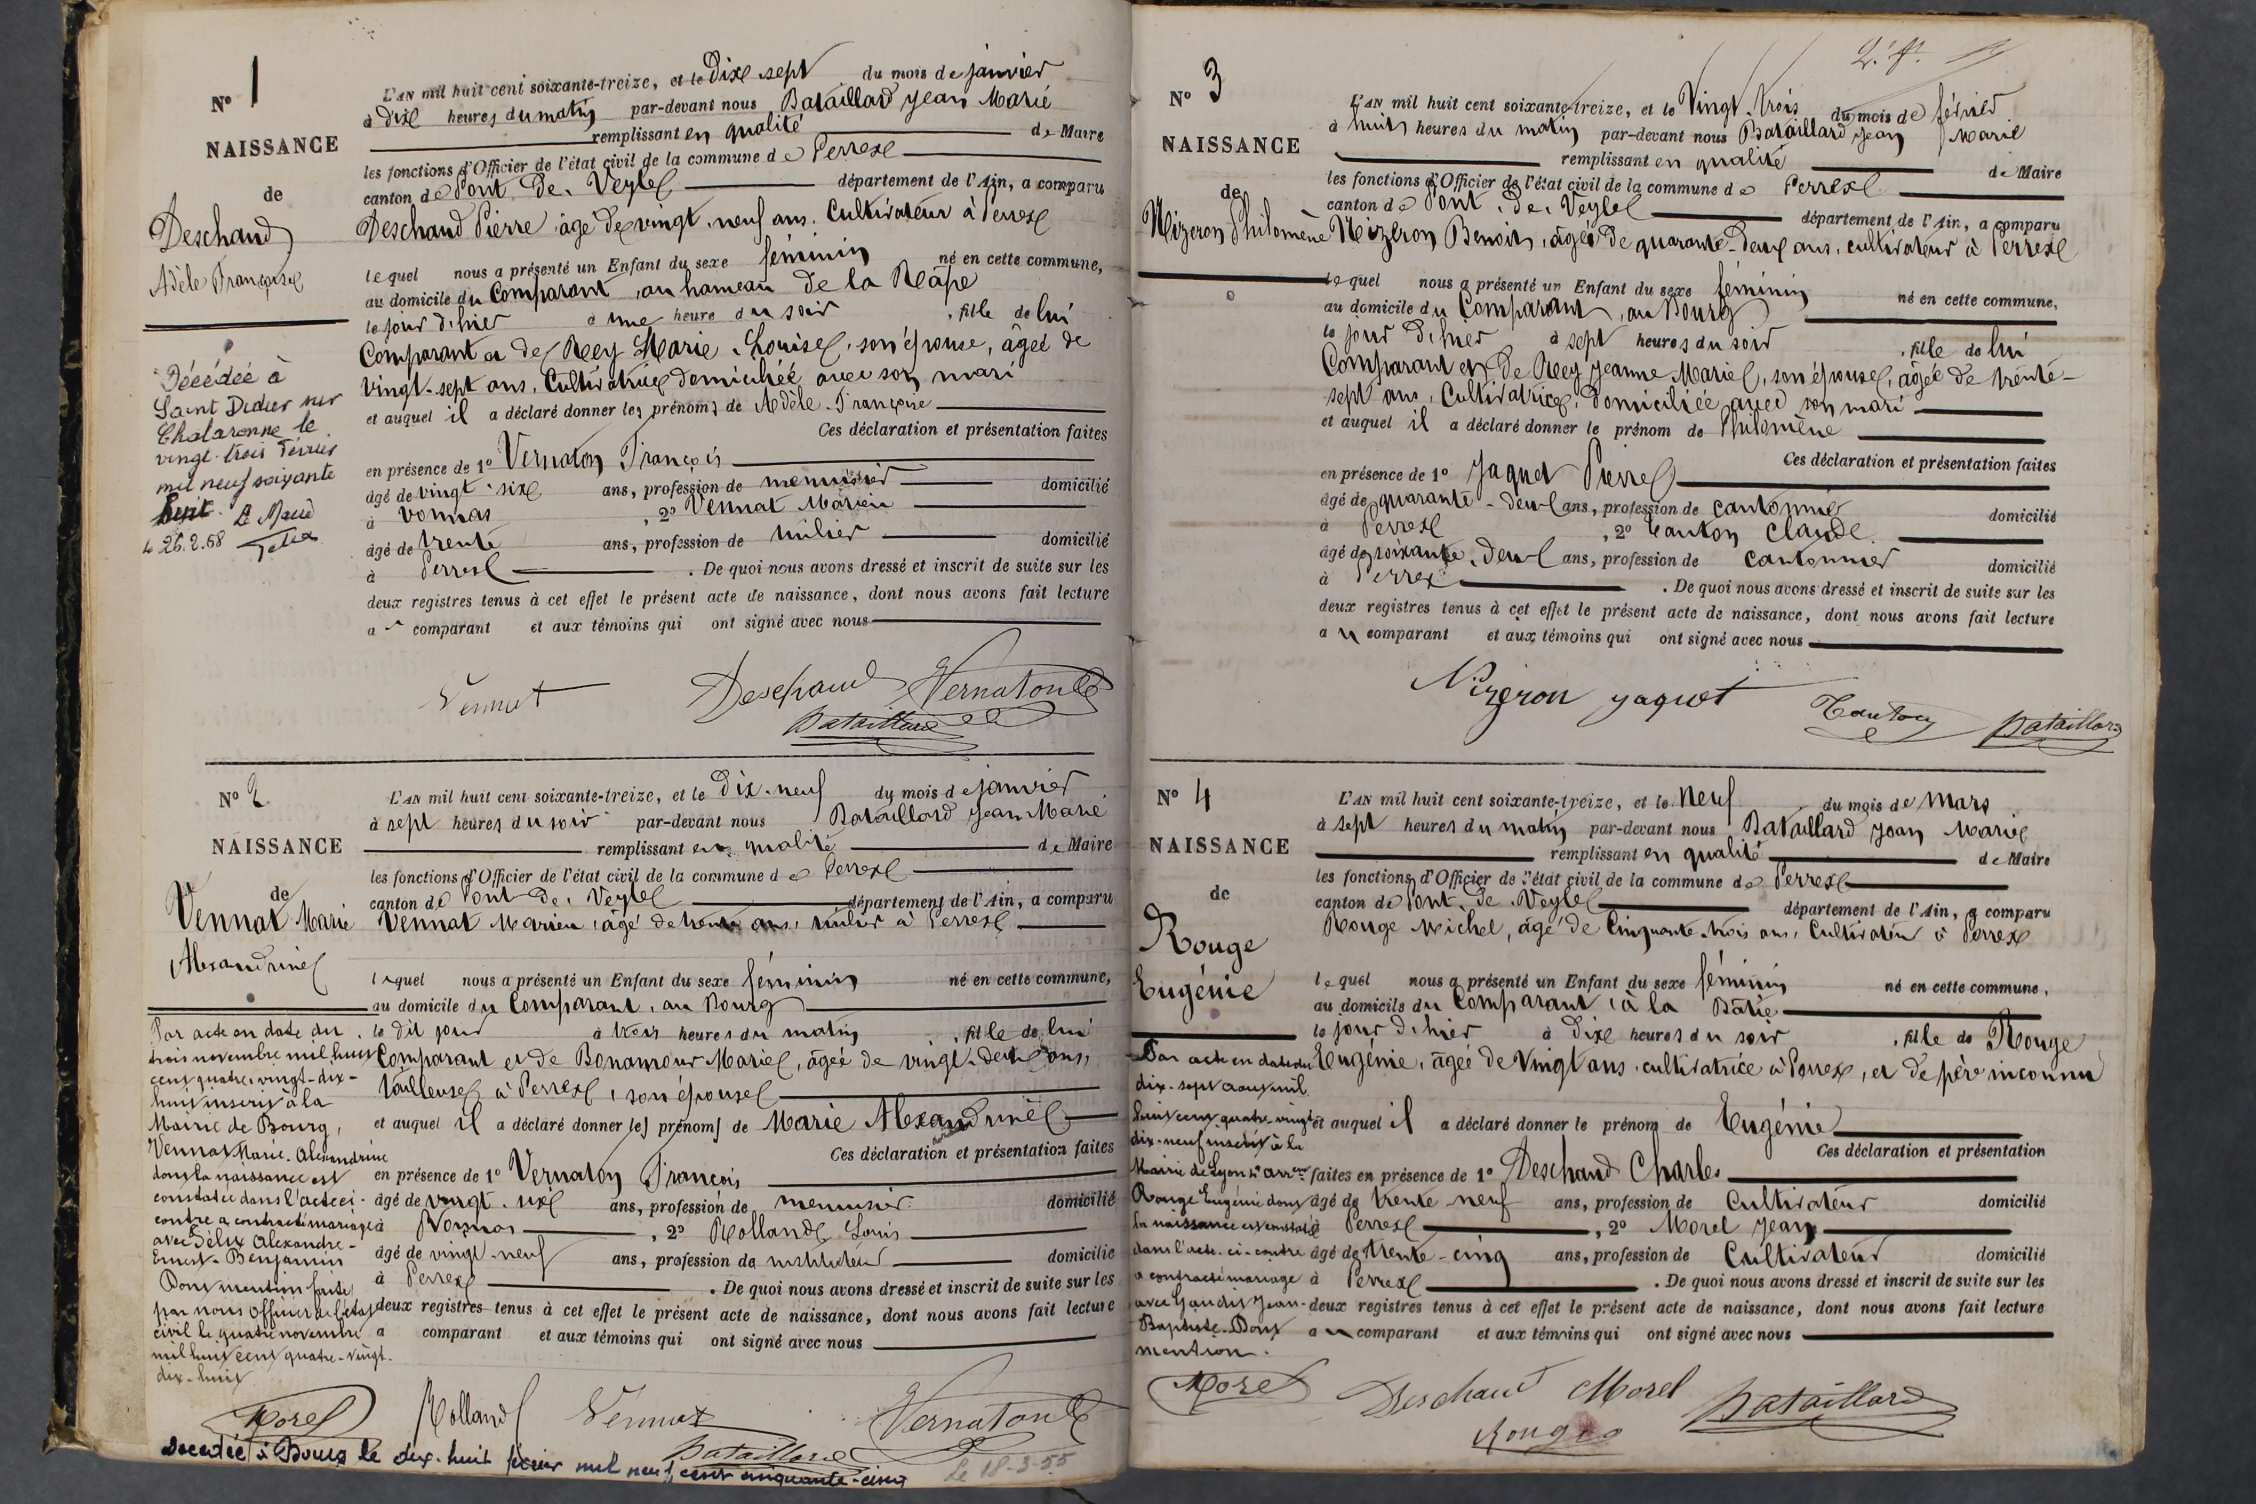 N° 1
NAISSANCE
de
Deschaud
Adèle Françoise
Décédée à
Saint Didier sur
Chalaronne le
vingt-trois Février
mil neuf soixante
huit. Le Maire
le 26.2.68
L'AN mil huit cent soixante-treize, et le Dix sept du mois de janvier
à dix heures du matin par-devant nous Bataillard Jean Marie
remplissant en qualité de Maire
les fonctions d'Officier de l'état civil de la commune de Perrex
canton de Pont de Veyle département de l'Ain, a comparu
Deschaud Pierre âgé de vingt-neuf ans, Cultivateur à Perrex
lequel nous a présenté un Enfant du sexe féminin né en cette commune,
au domicile du Comparant, au hameau de la Reâpe
le jour d'hier à une heure du soir, fille de lui
Comparant et de Rey Marie Louise, son épouse, âgée de
vingt-sept ans, Cultivatrice domiciliée avec son mari
et auquel il a déclaré donner les prénoms de Adèle-Françoise
Ces déclaration et présentation faites
en présence de 1° Vernaton François
âgé de vingt-six ans, profession de menuisier domicilié
à Vonnas, 2° Vennat Marien
âgé de trente ans, profession de milier domicilié
à Perrex. De quoi nous avons dressé et inscrit de suite sur les
deux registres tenus à cet effet le présent acte de naissance, dont nous avons fait lecture
au comparant et aux témoins qui ont signé avec nous
Vennat Deschaud Vernaton
Bataillard
N° 2
NAISSANCE
de
Vennat Marie
Alexandrine
Par acte en date du
trois novembre mil huit
cent quatre-vingt-dix-
huit inscrit à la
Mairie de Bourg,
Vennat Marie-Alexandrine
dont la naissance est
constatée dans l'acte ci-
contre a contracté mariage
avec Félix Alexandre-
Ernest-Benjamin
Dont mention faite
par nous Officier de l'état
civil le quatre novembre
mil huit cent quatre-vingt-
dix-huit
L'AN mil huit cent soixante-treize, et le Dix-neuf du mois de janvier
à sept heures du soir par-devant nous Bataillard Jean Marie
remplissant en qualité de Maire
les fonctions d'Officier de l'état civil de la commune de Perrex
canton de Pont de Veyle département de l'Ain, a comparu
Vennat Marien, âgé de trente ans, milier à Perrex
lequel nous a présenté un Enfant du sexe féminin né en cette commune,
au domicile du Comparant, au Bourg
le dit jour à trois heures du matin, fille de lui
Comparant et de Bonamour Marie, âgée de vingt-deux ans,
tailleuse à Perrex, son épouse
et auquel il a déclaré donner les prénoms de Marie Alexandrine
Ces déclaration et présentation faites
en présence de 1° Vernaton François
âgé de vingt-six ans, profession de menuisier domicilié
à Vonnas, 2° Rolland Louis
âgé de vingt-neuf ans, profession de instituteur domicilié
à Perrex. De quoi nous avons dressé et inscrit de suite sur les
deux registres tenus à cet effet le présent acte de naissance, dont nous avons fait lecture
a comparant et aux témoins qui ont signé avec nous
Morel Rolland Vennat Vernaton
Bataillard
Décédée à Bourg le dix-huit février mil neuf cent cinquante-cinq Le 18-3-55
N° 3
NAISSANCE
de
Nizeron Philomène
L'AN mil huit cent soixante-treize, et le Vingt-trois du mois de février
à huit heures du matin par-devant nous Bataillard Jean Marie
remplissant en qualité de Maire
les fonctions d'Officier de l'état civil de la commune de Perrex
canton de Pont de Veyle département de l'Ain, a comparu
Nizeron Benoit, âgé de quarante-deux ans, cultivateur à Perrex
lequel nous a présenté un Enfant du sexe féminin né en cette commune,
au domicile du Comparant, au Bourg
le jour d'hier à sept heures du soir, fille de lui
Comparant et de Rey Jeanne Marie, son épouse, âgée de trente-
sept ans, Cultivatrice, domiciliée avec son mari
et auquel il a déclaré donner le prénom de Philomène
Ces déclaration et présentation faites
en présence de 1° Jaquet Pierre
âgé de quarante-deux ans, profession de cantonnier domicilié
à Perrex, 2° Tanton Claude
âgé de soixante-deux ans, profession de cantonnier domicilié
à Perrex. De quoi nous avons dressé et inscrit de suite sur les
deux registres tenus à cet effet le présent acte de naissance, dont nous avons fait lecture
au comparant et aux témoins qui ont signé avec nous
Nizeron Jaquet Tanton Bataillard
N° 4
NAISSANCE
de
Rouge
Eugénie
Par acte en date du
dix-sept août mil
huit cent quatre-vingt
dix-neuf inscrit à la
Mairie de Lyon 2e arrent
Rouge Eugénie dont
la naissance est constatée
dans l'acte ci-contre
a contracté mariage
avec Gaudit Jean-
Baptiste. Dont
mention.
L'AN mil huit cent soixante-treize, et le Neuf du mois de Mars
à sept heures du matin par-devant nous Bataillard Jean Marie
remplissant en qualité de Maire
les fonctions d'Officier de l'état civil de la commune de Perrex
canton de Pont de Veyle département de l'Ain, a comparu
Rouge Michel, âgé de Cinquante-trois ans, Cultivateur à Perrex
lequel nous a présenté un Enfant du sexe féminin né en cette commune,
au domicile du Comparant, à la Bâtie
le jour d'hier à dix heures du soir, fille de Rouge
Eugénie, âgée de Vingt ans, cultivatrice à Perrex, et de père inconnu
et auquel il a déclaré donner le prénom de Eugénie
Ces déclaration et présentation
faites en présence de 1° Deschaud Charles
âgé de trente neuf ans, profession de Cultivateur domicilié
à Perrex, 2° Morel Jean
âgé de trente-cinq ans, profession de Cultivateur domicilié
à Perrex. De quoi nous avons dressé et inscrit de suite sur les
deux registres tenus à cet effet le présent acte de naissance, dont nous avons fait lecture
au comparant et aux témoins qui ont signé avec nous
Morel Deschaud Morel Bataillard
Rouge